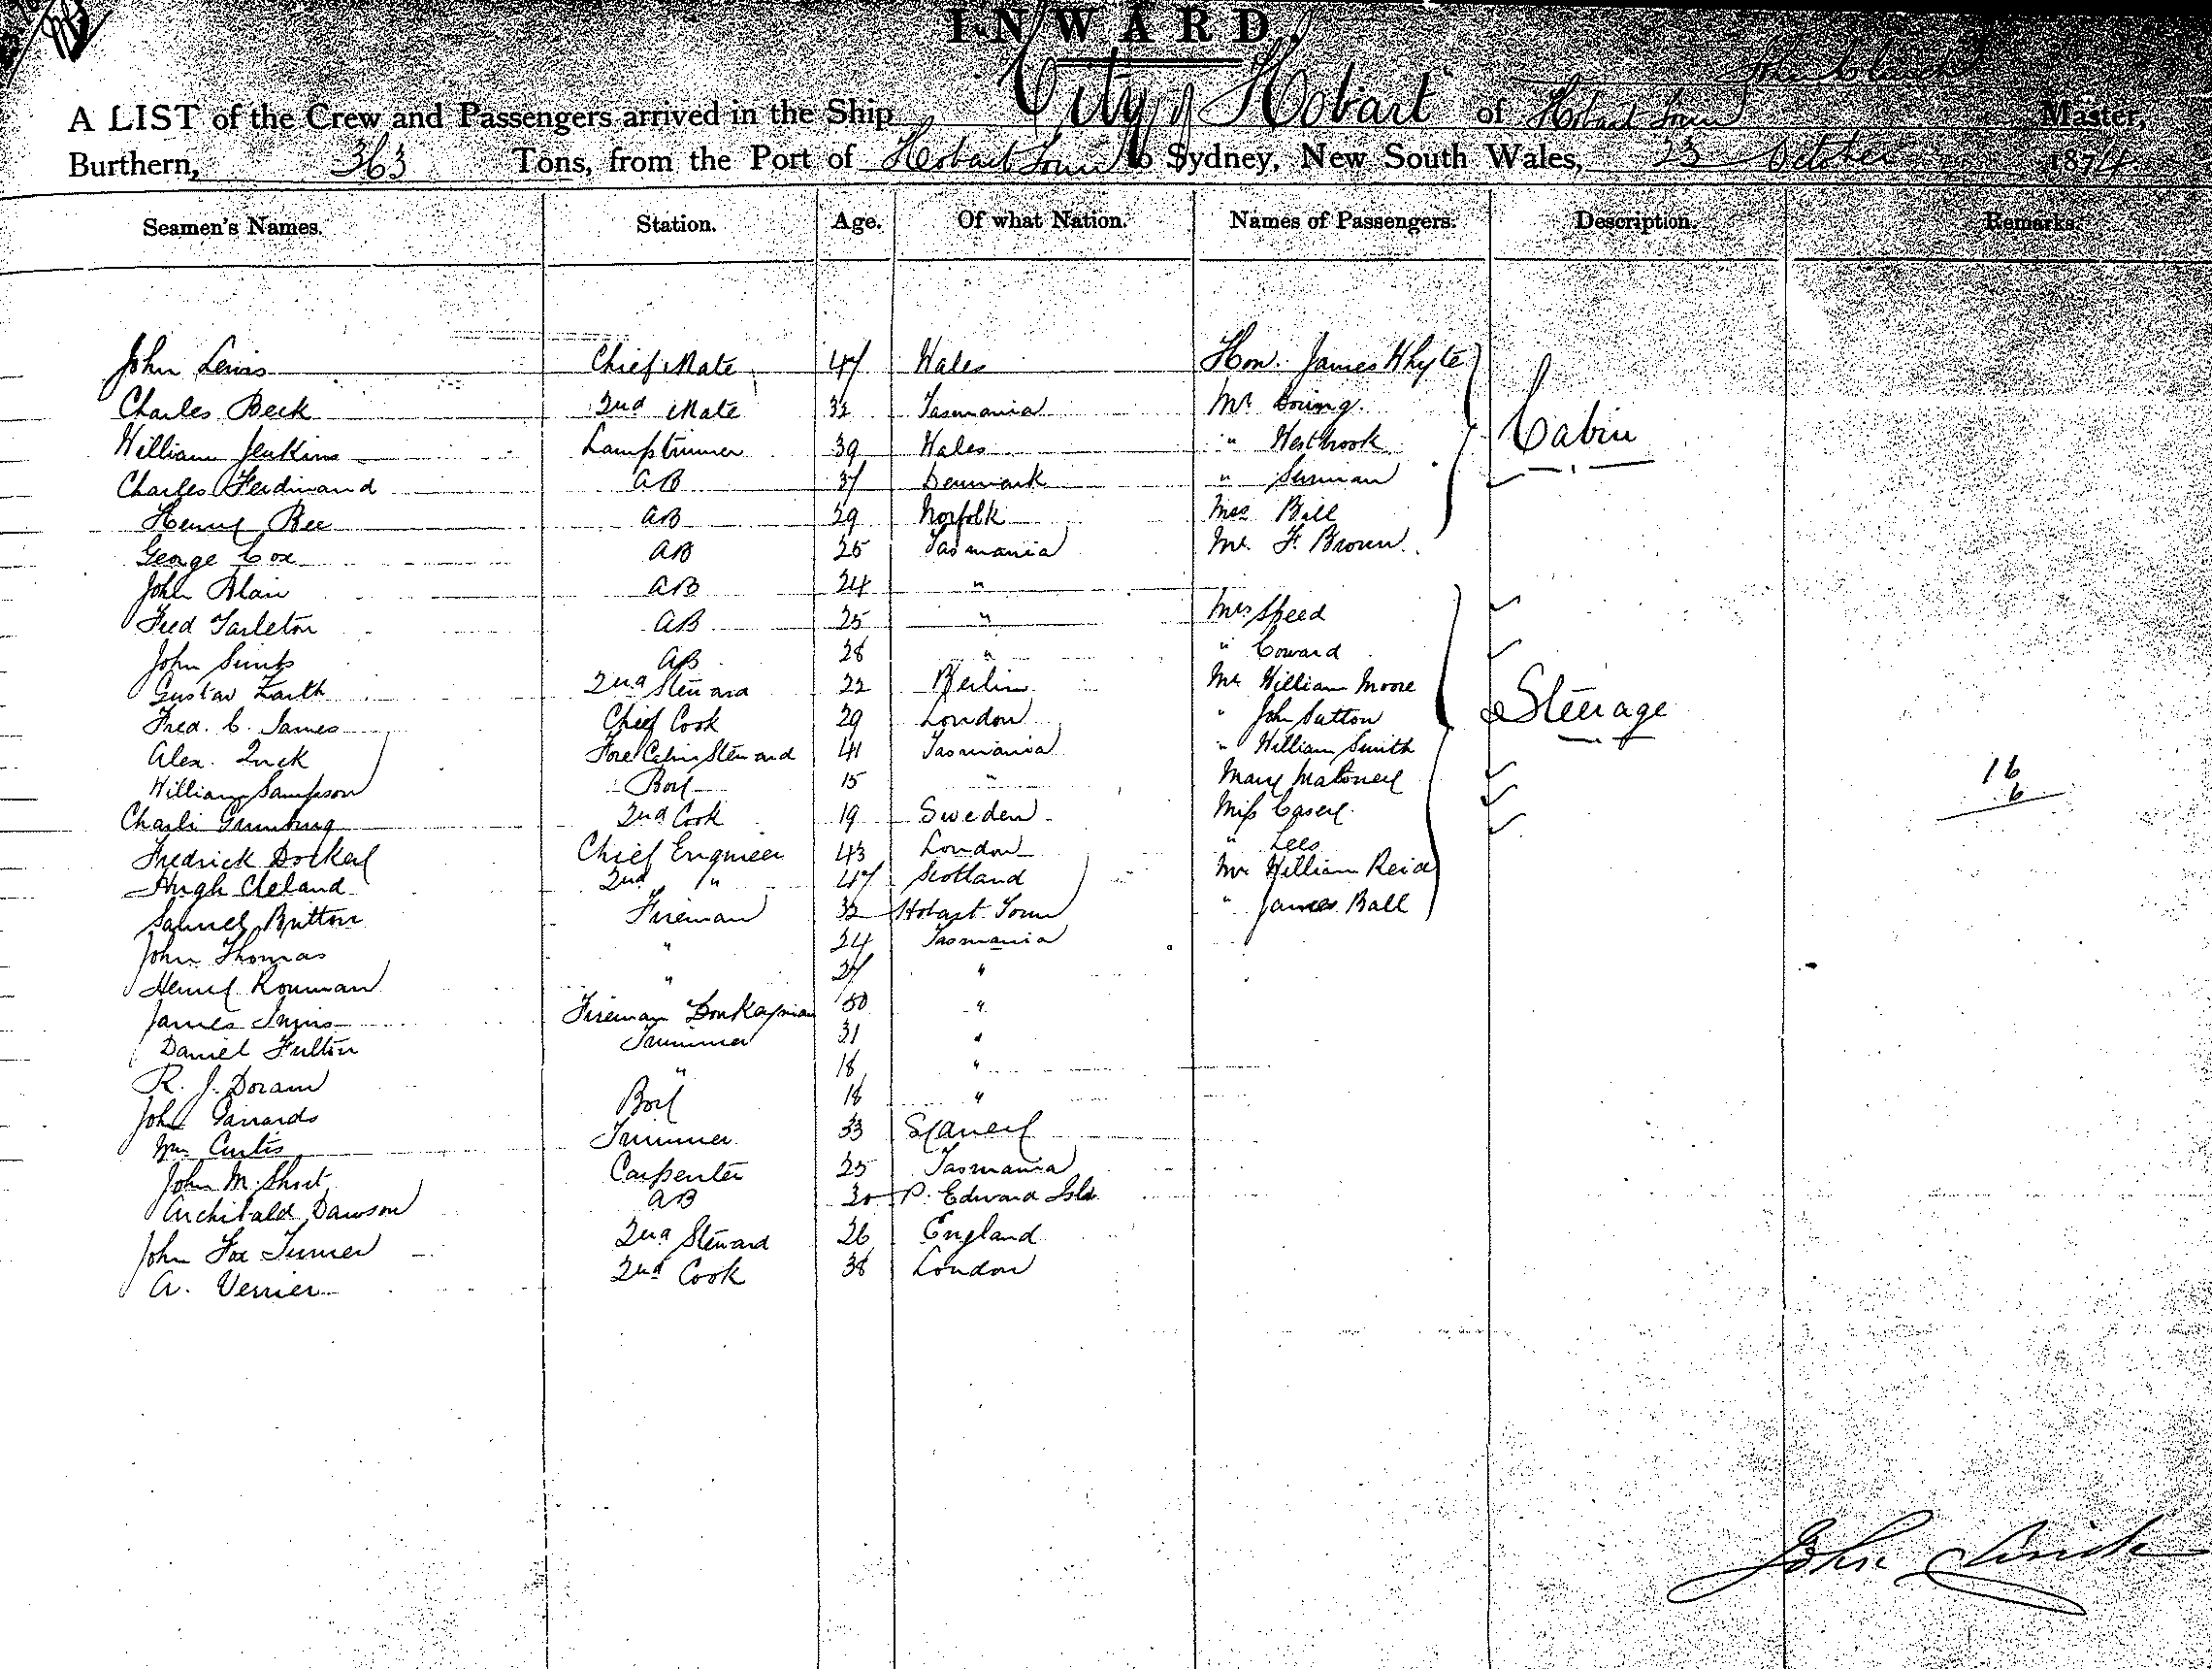 INWARD.
A LIST of the Crew and Passengers arrived in the Ship "City of Hobart" of Hobart Town John Clinch Master,
Burthern, 363 Tons, from the Port of Hobart Town to Sydney, New South Wales, 23 October 1874
Seamen's Names. Station. Age. Of what Nation. Names of Passengers. Description. Remarks.
John Lewis Chief Mate 47 Wales Hon. James Whyte
Charles Beck 2nd Mate 32 Tasmania Mr
William Jenkins Lamptrimmer 39 Wales " Westbrook Cabin
Charles Ferdinand AB 37 Denmark "
Henry Bee AB 29 Norfolk Mrs Ball
George Cox AB 25 Tasmania Mr. F. Brown
John Blair AB 24 "
Fred Tarleton AB 25 " Mrs Speed
John AB 28 " " Coward
Gustav 2nd Steward 22 Berlin Mr William Moore
Fred. C. James Chief Cook 29 London " John Sutton Steerage
Alex. Fore Cabin Steward 41 Tasmania " William Smith
William Sampson Boy 15 " Mary Maloney 16
Charli 2nd Cook 19 Sweden Miss Casey 6
Fredrick Chief Engineer 43 London " Lees
Hugh Cleland 2nd " 47 Scotland Mr William Reid
Samuel Britton Fireman 32 Hobart Town " James Ball
John Thomas " 24 Tasmania
Henry " 27 "
James Fireman Donkeyman 50 "
Daniel Fulton Trimmer 31 "
R. J. Doram " 18 "
John Boy 18 "
Wm Curtis Trimmer 33 Sydney
John M. Short Carpenter 25 Tasmania
Archibald Dawson AB 30 P. Edward Isld
John Fox Turner 2nd Steward 26 England
A. Verrier 2nd Cook 38 London
John Clinch